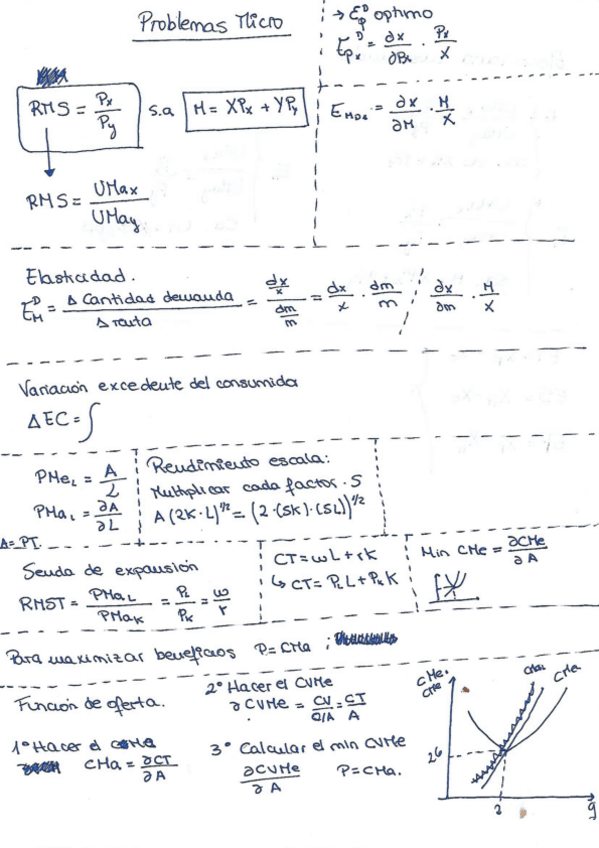 Problemas Micro
→ Eᴰp óptimo
Eᴰpx = ∂x/∂Px · Px/X
RMS = Px/Py s.a M = XPx + YPy
EMDa = ∂x/∂M · M/X
RMS = UMax/UMay
Elasticidad.
EᴰM = Δ Cantidad demanda/Δ renta = (dx/x)/(dm/m) = dx/x · dm/m / ∂x/∂m · M/X
Variación excedente del consumida
ΔEC = ∫
PMeL = A/L
PMaL = ∂A/∂L
A = PT.
Rendimiento escala:
Multiplicar cada factor · S
A (2K·L)^1/2 = (2·(SK)·(SL))^1/2
Senda de expansión
RMST = PMaL/PMaK = PL/PK = w/r
CT = wL + rK
↳ CT = PLL + PKK
Min CMe = ∂CMe/∂A
Para maximizar beneficios P = CMa ;
Función de oferta.
1º Hacer el CMa
CMa = ∂CT/∂A
2º Hacer el CVMe
∂ CVMe = CV/Q/A = CT/A
3º Calcular el min CVMe
∂CVMe/∂A P = CMa.
CMe.
CMe
CMa
26
2
q